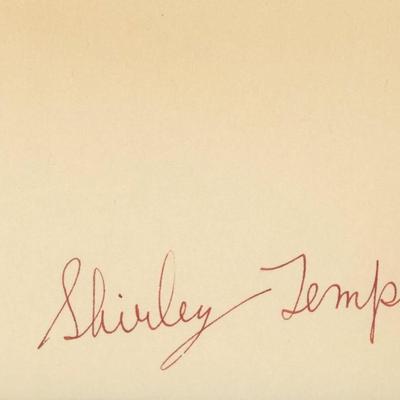 Shirley Temp